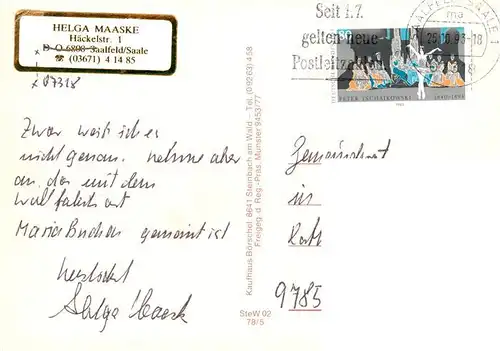 HELGA MAASKE
Häckelstr. 1
D-O 6800 Saalfeld/Saale
☎ (03671) 4 14 85
x 07318
Zwar weiß ich es
nicht genau, nehme aber
an, das mit dem
Wallfahrtsort
Maria Buchen gemeint ist
Helga Maaske
Kaufhaus-Börschel 8641 Steinbach am Wald – Tel. (0 92 63) 4 58
Freigeg. d. Reg.-Präs. Münster 9453/77
SteW 02
78/5
Seit 1.7.
gelten neue
Postleitzahlen
SAALFELD, SAALE 1
ma
25.10.93-18
80
PETER TSCHAIKOWSKI
1840-1893
in
9785